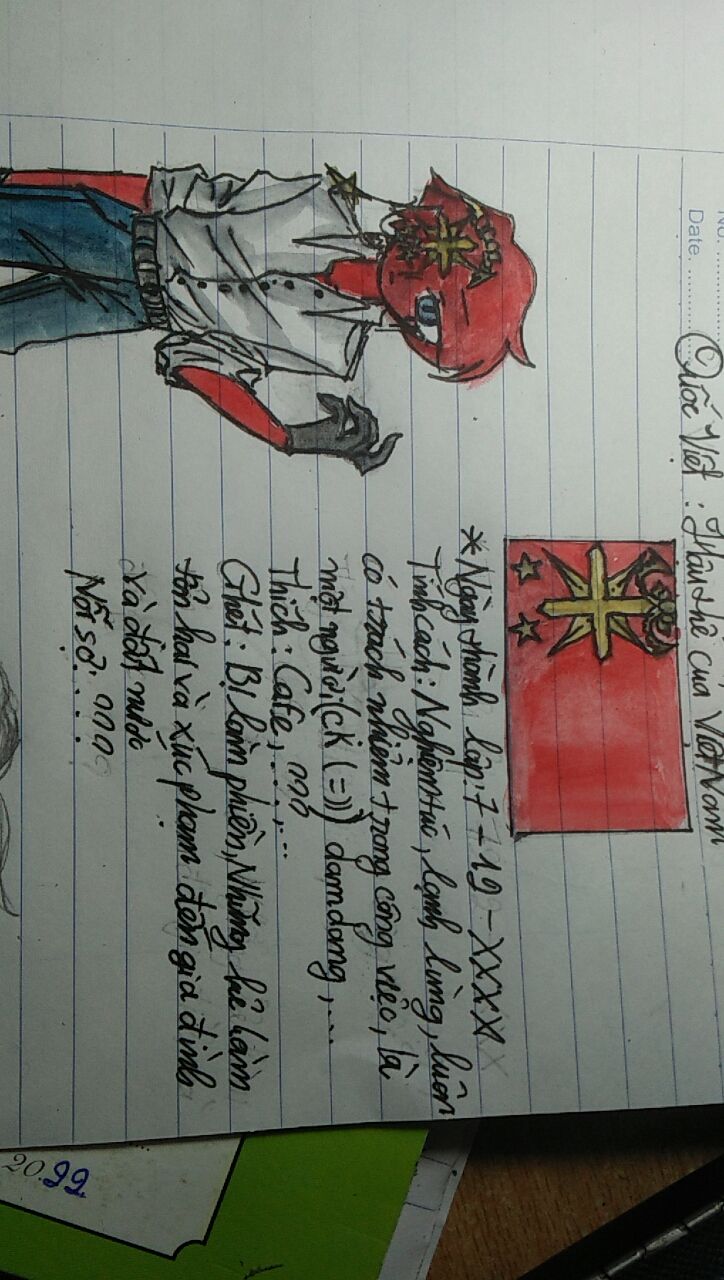 No
Date
Quốc Việt : Hậu thế của Việt Nam
* Ngày thành lập: 7 - 19 - XXXX
Tính cách: Nghiêm túc, lạnh lùng, luôn
có trách nhiệm trong công việc, là
một người (ck (=)) đam đang, ...
Thích: Cafe, ...
Ghét: Bị làm phiền, Những kẻ làm
tổn hại và xúc phạm đến gia đình
và đất nước
Nỗi sợ: ???
20 22